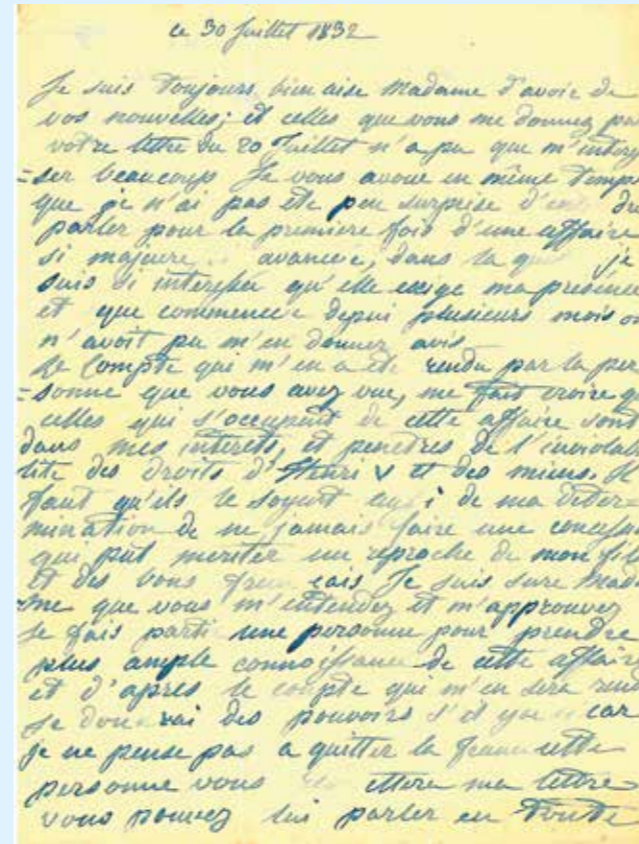 ce 30 Juillet 1832
Je suis toujours bien aise Madame d'avoir de
vos nouvelles; et celles que vous me donnez par
votre lettre du 20 Juillet n'a pu que m'interes
=ser beaucoup Je vous avoue en même temps
que je n'ai pas ete peu surprise d'
parler pour la premiere fois d'une affaire
si majeure avancée, dans la je
suis si interessée qu'elle exige ma présence
et que commencée depuis plusieurs mois on
n'avoit pu m'en donner avis
Le compte qui m'en a ete rendu par la per
=sonne que vous avez vue, me fait croire q
celles qui s'occupent de cette affaire sont
dans mes interets, et penetres de l'inviolabi
lité des droits d'Henri V et des miens. Il
faut qu'ils le soyent de ma deter
mination de ne jamais faire une concession
qui put meriter un reproche de mon fils
et des bons francais Je suis sure Mada
=me que vous m'entendez et m'approuvez
Je fais parti une personne pour prendre
plus ample connoissance de cette affaire
et d'apres le compte qui m'en sera rendu
je donnerai des pouvoirs s'il y car
je ne pense pas a quitter la france cette
personne vous ma lettre
vous pouvez lui parler en toute